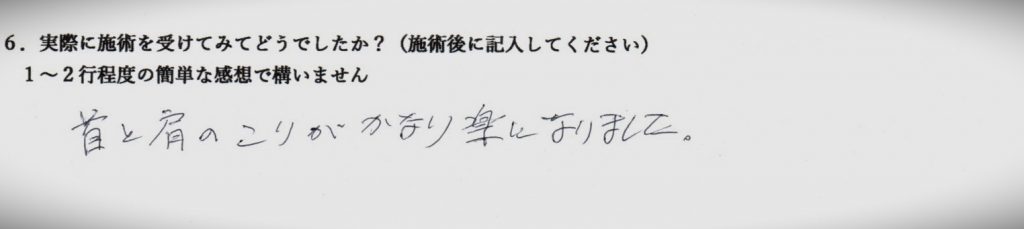 6．実際に施術を受けてみてどうでしたか？（施術後に記入してください）
1～2行程度の簡単な感想で構いません
首と肩のこりがかなり楽になりました。